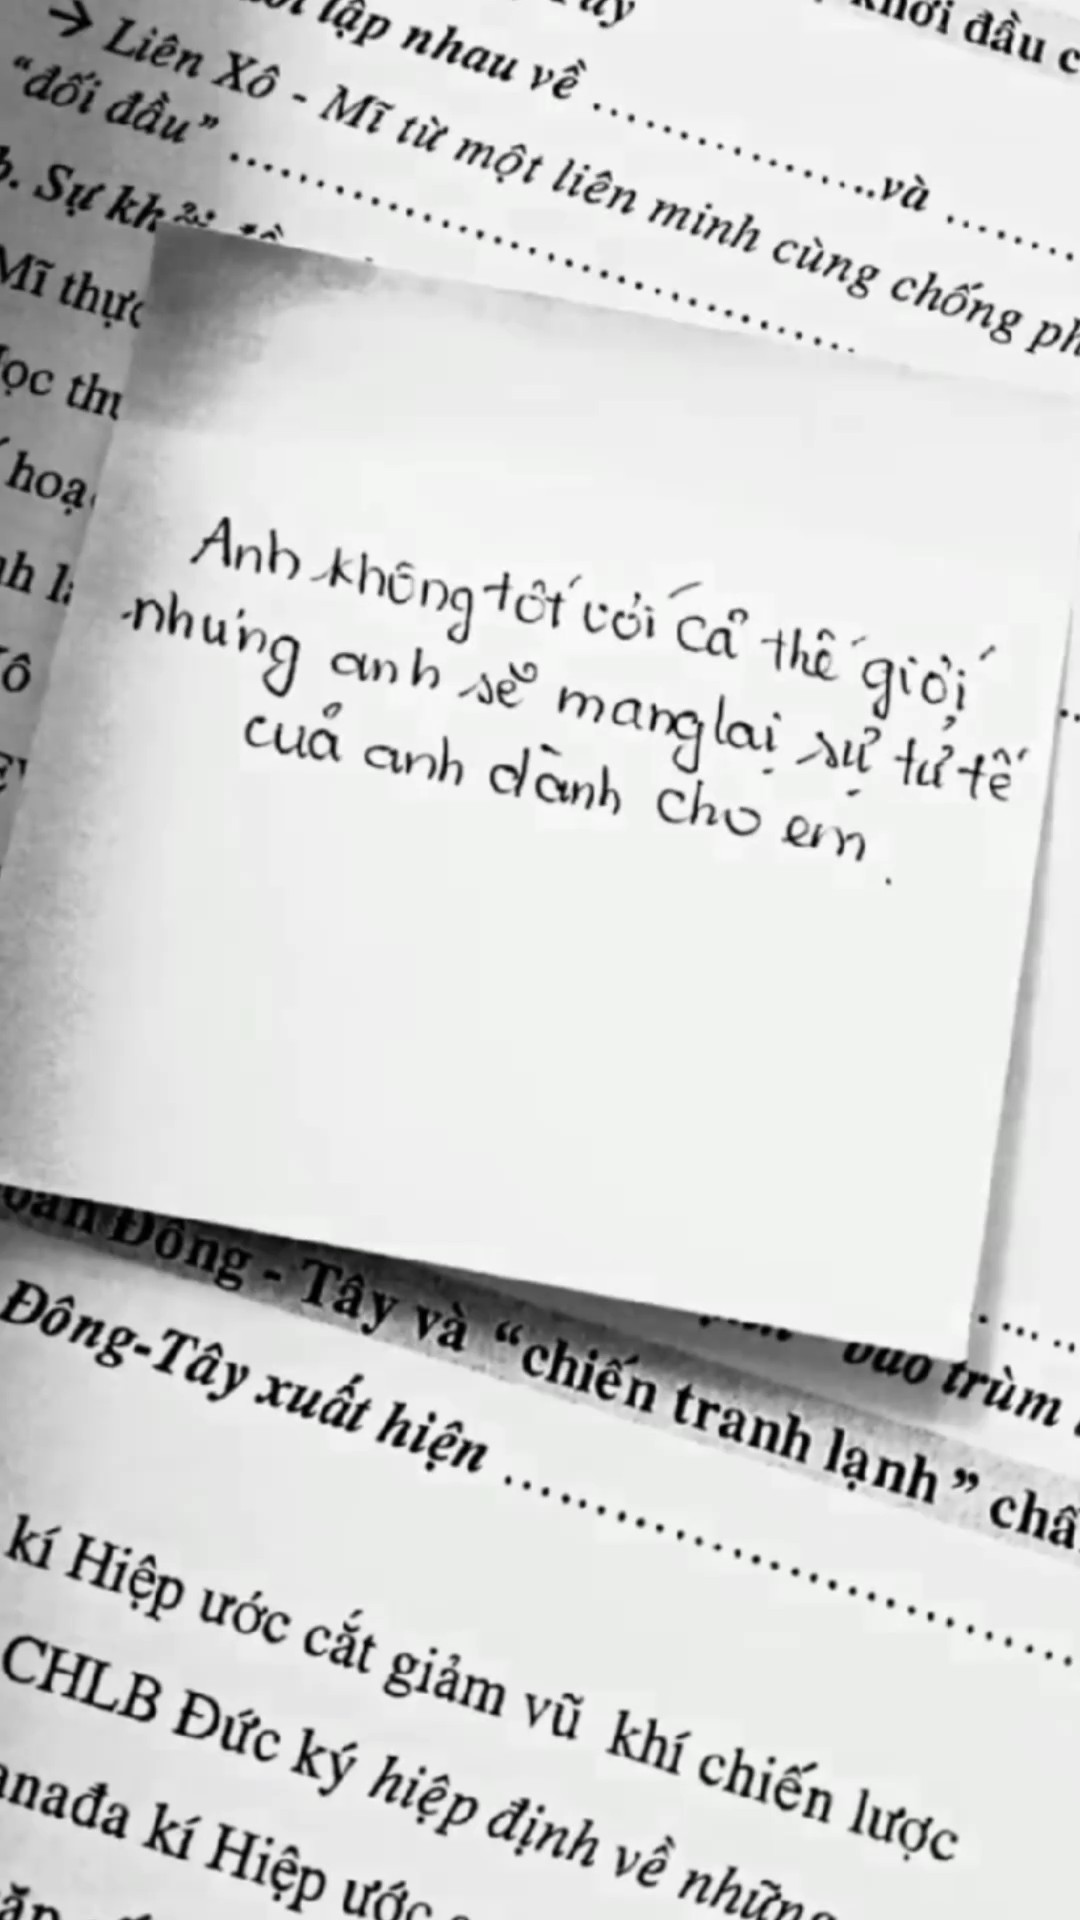 khởi đầu
lập nhau về ......................và .........
→ Liên Xô - Mĩ từ một liên minh cùng chống
“đối đầu” .............................................
b. Sự
Mĩ thực
hoạ
Anh không tốt với cả thế giới
nhưng anh sẽ mang lại sự tử tế
của anh dành cho em.
Đông - Tây và “chiến tranh lạnh”
bao trùm
Đông-Tây xuất hiện .............................................
kí Hiệp ước cắt giảm vũ khí chiến lược
CHLB Đức ký hiệp định về những
kí Hiệp ước